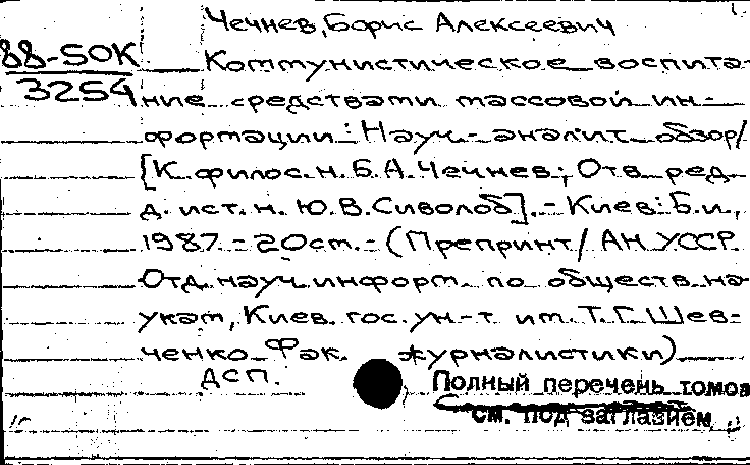 Чечнев, Борис Алексеевич
88-50К
3254
Коммунистическое воспита-
ние средствами массовой ин-
формации : Науч.- аналит. обзор/
[К. филос. н. Б. А. Чечнев; Отв. ред.
д. ист. н. Ю. В. Сиволоб]. - Киев: Б. и.,
1987. - 20 см. - (Препринт / АН УССР.
Отд. науч. информ. по обществ. на-
укам, Киев. гос. ун-т им. Т. Г. Шев-
ченко. Фак. журналистики)
ДСП.
Полный перечень томов
см. под заглавием